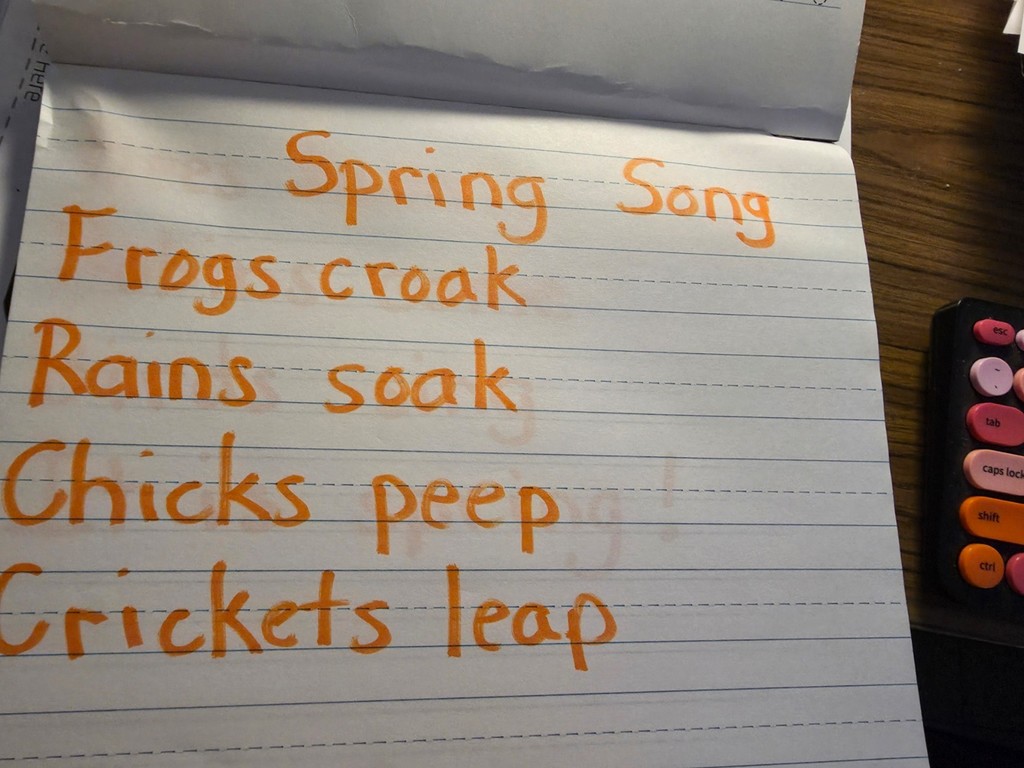 Spring Song
Frogs croak
Rains soak
Chicks peep
Crickets leap
here
esc
tab
caps lock
shift
ctrl